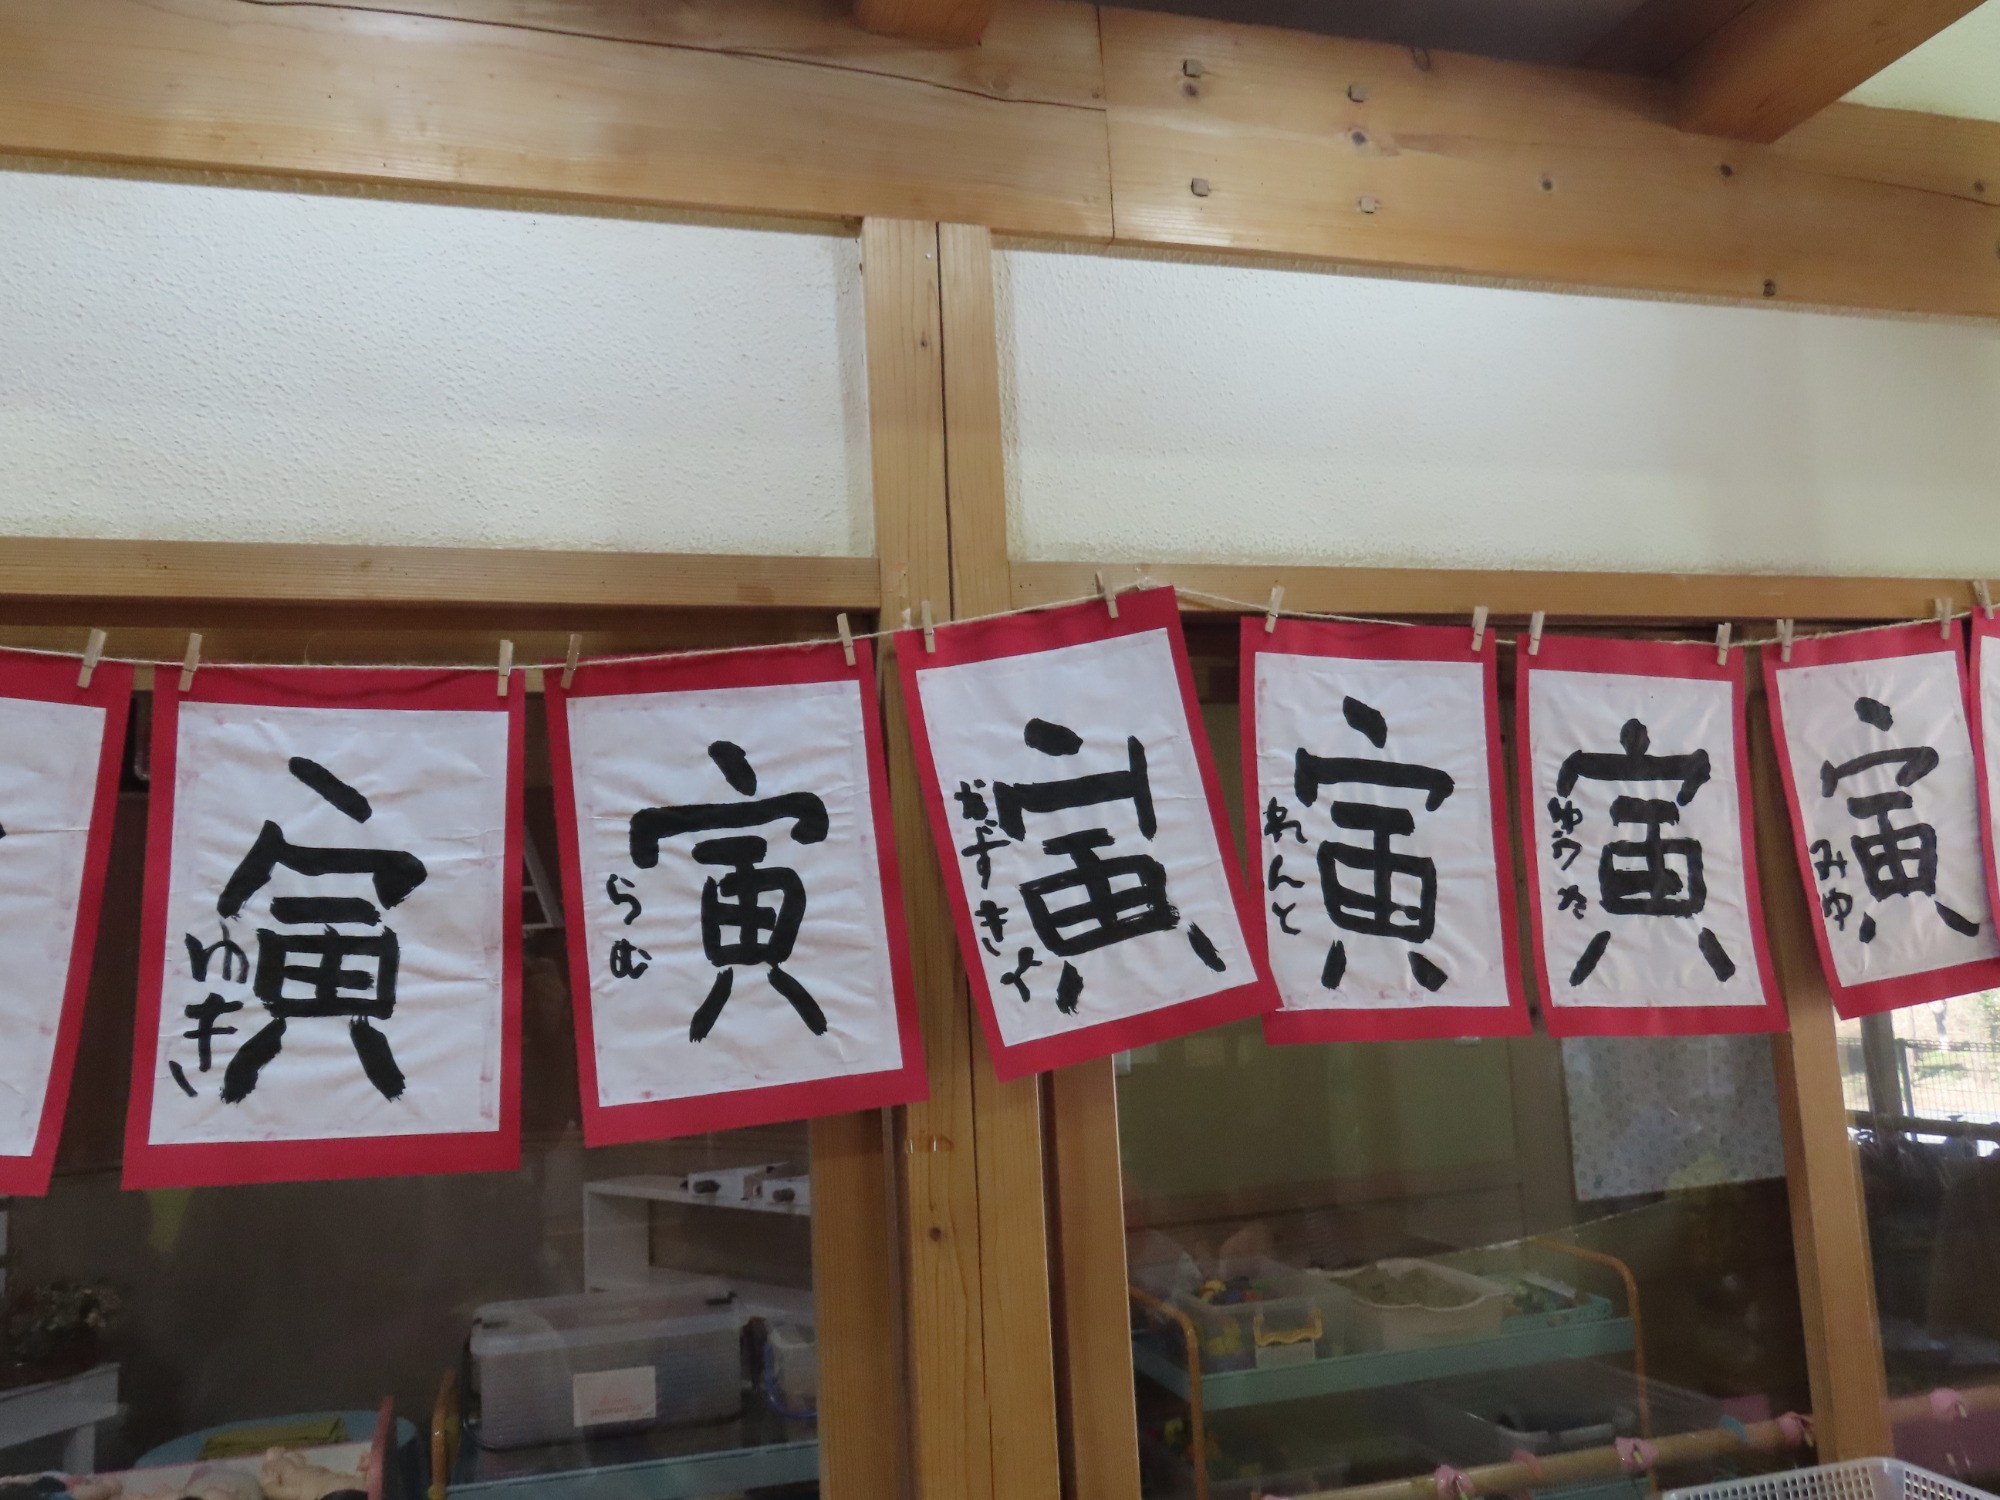 寅
ゆき
寅
らむ
寅
かずきよ
寅
れんと
寅
ゆうた
寅
みゆ